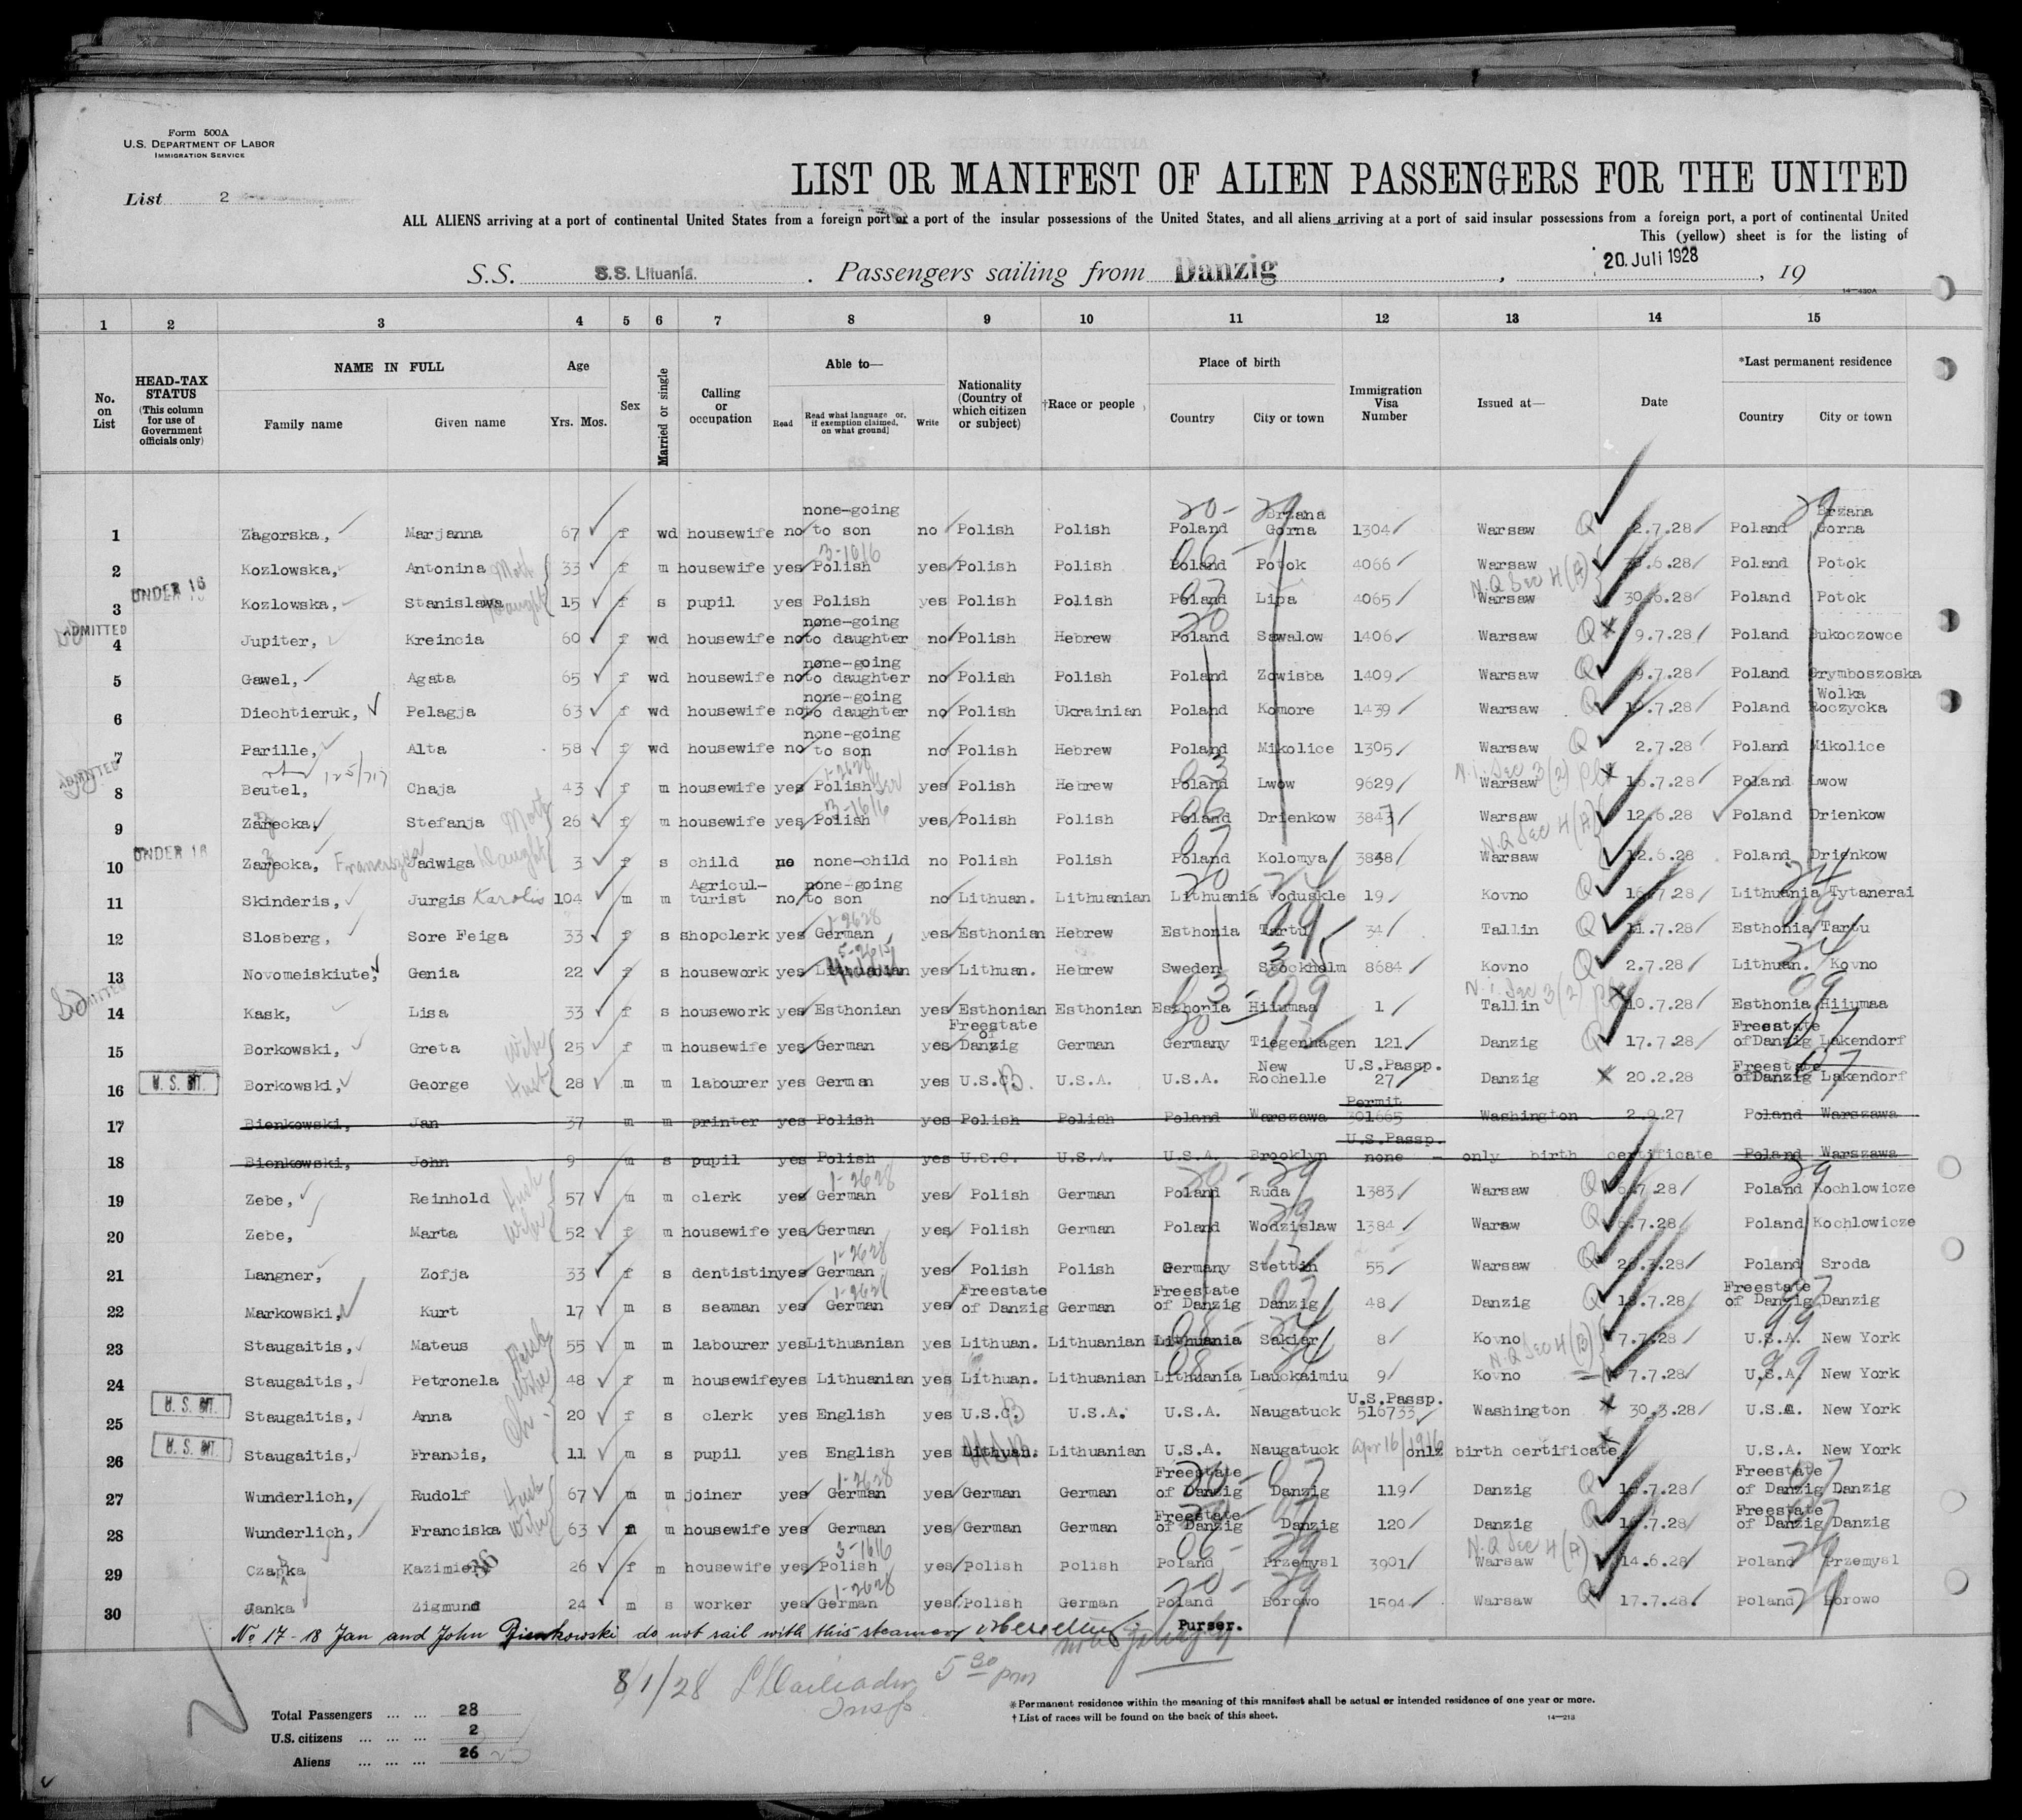 Form 500A
U.S. DEPARTMENT OF LABOR
IMMIGRATION SERVICE
List 2
LIST OR MANIFEST OF ALIEN PASSENGERS FOR THE UNITED
ALL ALIENS arriving at a port of continental United States from a foreign port or a port of the insular possessions of the United States, and all aliens arriving at a port of said insular possessions from a foreign port, a port of continental United
This (yellow) sheet is for the listing of
S.S. S.S. Lituania. Passengers sailing from Danzig, 20. Juli 1928, 19
14—430A
1 2 3 4 5 6 7 8 9 10 11 12 13 14 15
No. on List
HEAD-TAX STATUS (This column for use of Government officials only)
NAME IN FULL
Family name Given name
Age
Yrs. Mos.
Sex
Married or single
Calling or occupation
Able to—
Read Read what language or, if exemption claimed, on what ground] Write
Nationality (Country of which citizen or subject)
†Race or people
Place of birth
Country City or town
Immigration Visa Number
Issued at—
Date
*Last permanent residence
Country City or town
1 Zagorska, Marjanna 67 f wd housewife no none-going to son no Polish Polish Poland Brzana Gorna 1304 Warsaw Q 2.7.28 Poland Brzana Gorna
2 Kozlowska, Antonina Moth 33 f m housewife yes Polish 3-1616 yes Polish Polish Poland Potok 4066 Warsaw .6.28 Poland Potok
UNDER 16 3 Kozlowska, Stanislawa Daught 15 f s pupil yes Polish yes Polish Polish Poland Lipa 4065 N.Q Sec 4(A) Warsaw 30.6.28 Poland Potok
ADMITTED 4 Jupiter, Kreincia 60 f wd housewife no none-going to daughter no Polish Hebrew Poland Sawalow 1406 Warsaw Q 9.7.28 Poland Bukoczowce
5 Gawel, Agata 65 f wd housewife no none-going to daughter no Polish Polish Poland Zowisba 1409 Warsaw Q 9.7.28 Poland Grymboszoska
6 Diechtieruk, Pelagja 63 f wd housewife no none-going to daughter no Polish Ukrainian Poland Komore 1439 Warsaw Q .7.28 Poland Wolka Roczycka
7 Parille, Alta 58 f wd housewife no none-going to son no Polish Hebrew Poland Mikolice 1305 Warsaw Q 2.7.28 Poland Mikolice
ADMITTED 8 Beutel, Chaja 43 f m housewife yes Polish 1-2628 yes Polish Hebrew Poland Lwow 9629 N.i. Sec 3(2) Warsaw 16.7.28 Poland Lwow
9 Zarecka, Stefanja Moth 26 f m housewife yes Polish 3-1616 yes Polish Polish Poland Drienkow 3847 Warsaw 12.6.28 Poland Drienkow
UNDER 16 10 Zarecka, Jadwiga Daught 3 f s child no none-child no Polish Polish Poland Kolomya 3848 N.Q Sec 4(A) Warsaw 12.6.28 Poland Drienkow
11 Skinderis, Jurgis Karolis 104 m m Agricul-turist no none-going to son no Lithuan. Lithuanian Lithuania Voduskle 19 Kovno Q 16.7.28 Lithuania Tytanerai
12 Slosberg, Sore Feiga 33 f s shopclerk yes German 1-2628 yes Esthonian Hebrew Esthonia Tartu 34 Tallin Q 11.7.28 Esthonia Tartu
13 Novomeiskiute, Genia 22 f s housework yes Lithuanian yes Lithuan. Hebrew Sweden Stockholm 8684 Kovno Q 2.7.28 Lithuan. Kovno
14 Kask, Lisa 33 f s housework yes Esthonian yes Esthonian Esthonian Esthonia Hiiumaa 1 N.i. Sec 3(2) Tallin 10.7.28 Esthonia Hiiumaa
15 Borkowski, Greta Wife 25 f m housewife yes German yes Freestate of Danzig German Germany Tiegenhagen 121 Danzig Q 17.7.28 Freestate of Danzig Lakendorf
U. S. CIT. 16 Borkowski, George Husb 28 m m labourer yes German yes U.S.C. U.S.A. U.S.A. New Rochelle U.S.Passp. 27 Danzig 20.2.28 Freestate of Danzig Lakendorf
17 Bienkowski, Jan 37 m m printer yes Polish yes Polish Polish Poland Warszawa Permit 301665 Washington 2.9.27 Poland Warszawa
18 Bienkowski, John 9 m s pupil yes Polish yes U.S.C. U.S.A. U.S.A. Brooklyn U.S.Passp. none - only birth certificate Poland Warszawa
19 Zebe, Reinhold Husb 57 m m clerk yes German 1-2628 yes Polish German Poland Ruda 1383 Warsaw Q 6.7.28 Poland Kochlowicze
20 Zebe, Marta Wife 52 f m housewife yes German yes Polish German Poland Wodzislaw 1384 Warsaw Q 6.7.28 Poland Kochlowicze
21 Langner, Zofja 33 f s dentistin yes German 1-2628 yes Polish Polish Germany Stettin 55 Warsaw Q 2 .28 Poland Sroda
22 Markowski, Kurt 17 m s seaman yes German 1-2628 yes Freestate of Danzig German Freestate of Danzig Danzig 48 Danzig Q 18.7.28 Freestate of Danzig Danzig
23 Staugaitis, Mateus 55 m m labourer yes Lithuanian yes Lithuan. Lithuanian Lithuania Sakiar 8 Kovno 7.7.28 U.S.A. New York
24 Staugaitis, Petronela Wife 48 f m housewife yes Lithuanian yes Lithuan. Lithuanian Lithuania Lauckaimiu 9 N.Q Sec 4(B) Kovno 7.7.28 U.S.A. New York
U. S. CIT. 25 Staugaitis, Anna 20 f s clerk yes English yes U.S.C. U.S.A. U.S.A. Naugatuck U.S.Passp. 516733 Washington 30.3.28 U.S.A. New York
U. S. CIT. 26 Staugaitis, Francis, 11 m s pupil yes English yes Lithuan. Lithuanian U.S.A. Naugatuck Apr 16/1916 only birth certificate U.S.A. New York
27 Wunderlich, Rudolf Husb 67 m m joiner yes German 1-2628 yes German German Freestate of Danzig Danzig 119 Danzig Q 1 .7.28 Freestate of Danzig Danzig
28 Wunderlich, Franciska Wife 63 m housewife yes German yes German German Freestate of Danzig Danzig 120 Danzig Q 1 .7.28 Freestate of Danzig Danzig
29 Czapka Kazimiera 36 26 f m housewife yes Polish 3-1616 yes Polish Polish Poland Przemysl 3901 N.Q Sec 4(A) Warsaw 14.6.28 Poland Przemysl
30 Janka Zigmund 24 m s worker yes German 1-2628 yes Polish German Poland Borowo 1594 Warsaw Q 17.7.28 Poland Borowo
No 17-18 Jan and John Bienkowski do not sail with this steamer Purser.
8/1/28 5 30 pm
Insp
Total Passengers ... ... 28
U.S. citizens ... ... ... 2
Aliens ... ... ... 26
*Permanent residence within the meaning of this manifest shall be actual or intended residence of one year or more.
†List of races will be found on the back of this sheet.
14—213